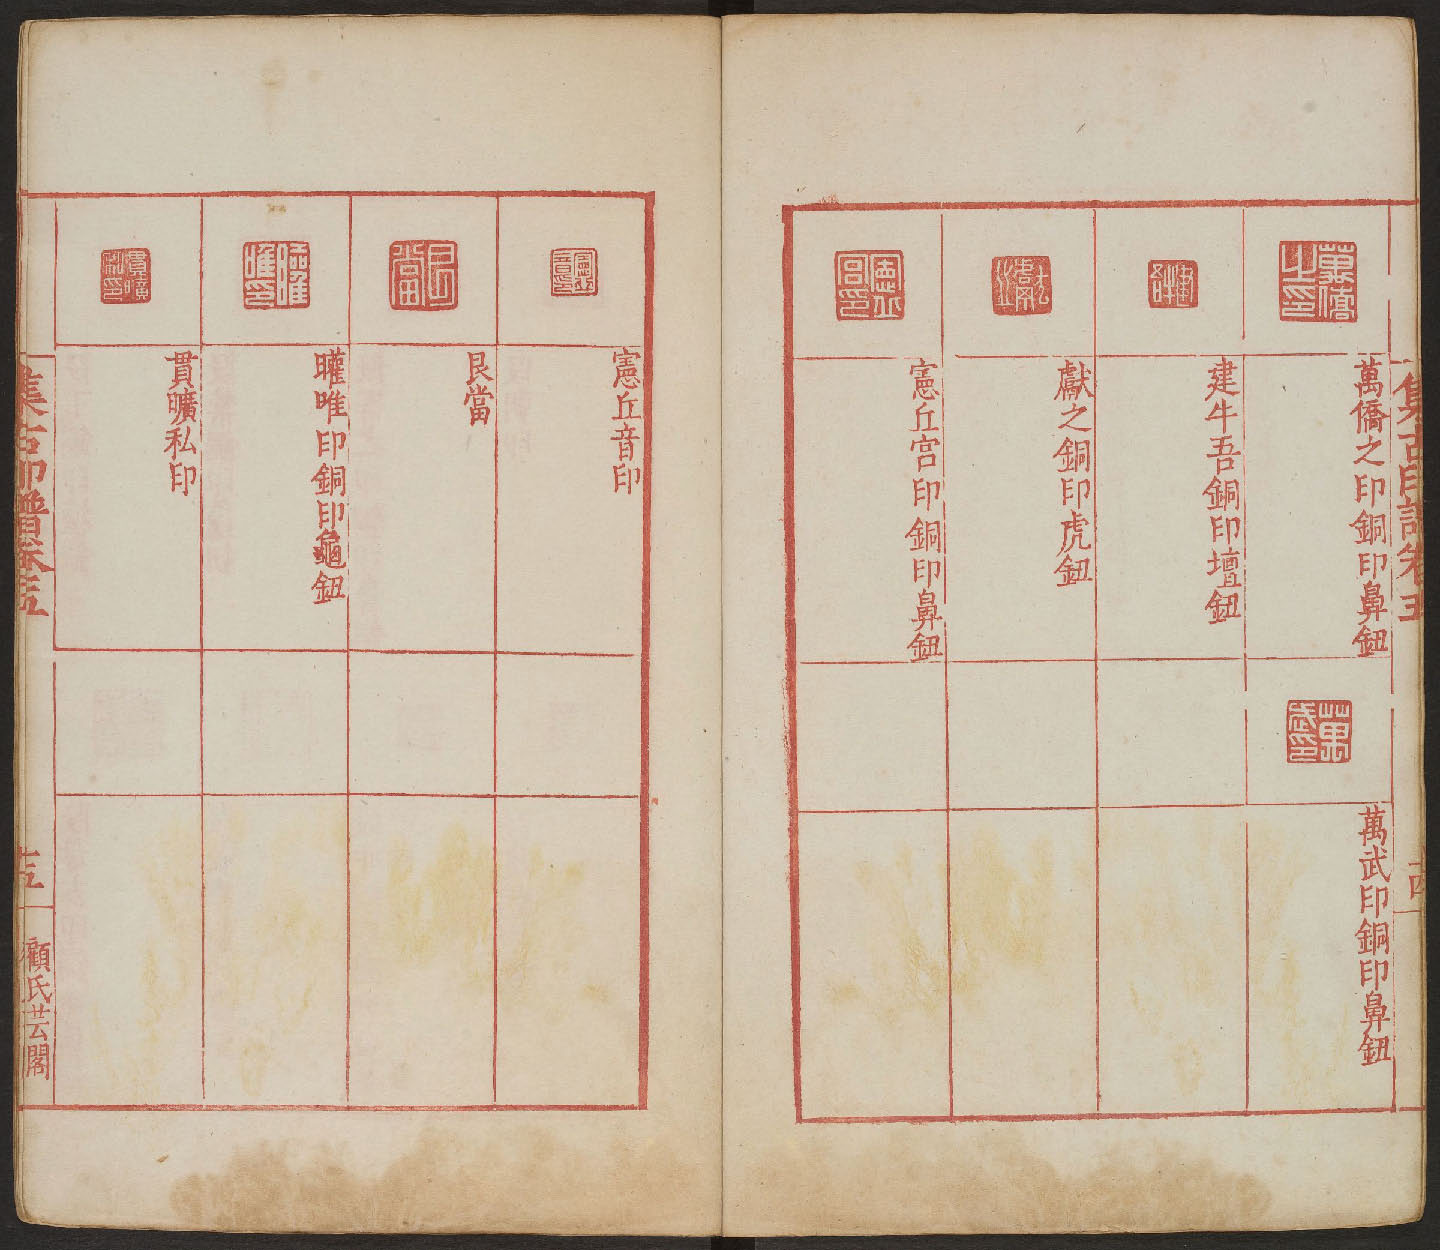 集古印譜卷五
萬僑之印銅印鼻鈕
萬武印銅印鼻鈕
建牛吾銅印壇鈕
獻之銅印虎鈕
憲丘宮印銅印鼻鈕
憲丘音印
艮當
矔唯印銅印龜鈕
貫曠私印
集古印譜卷五
十五
顧氏芸閣